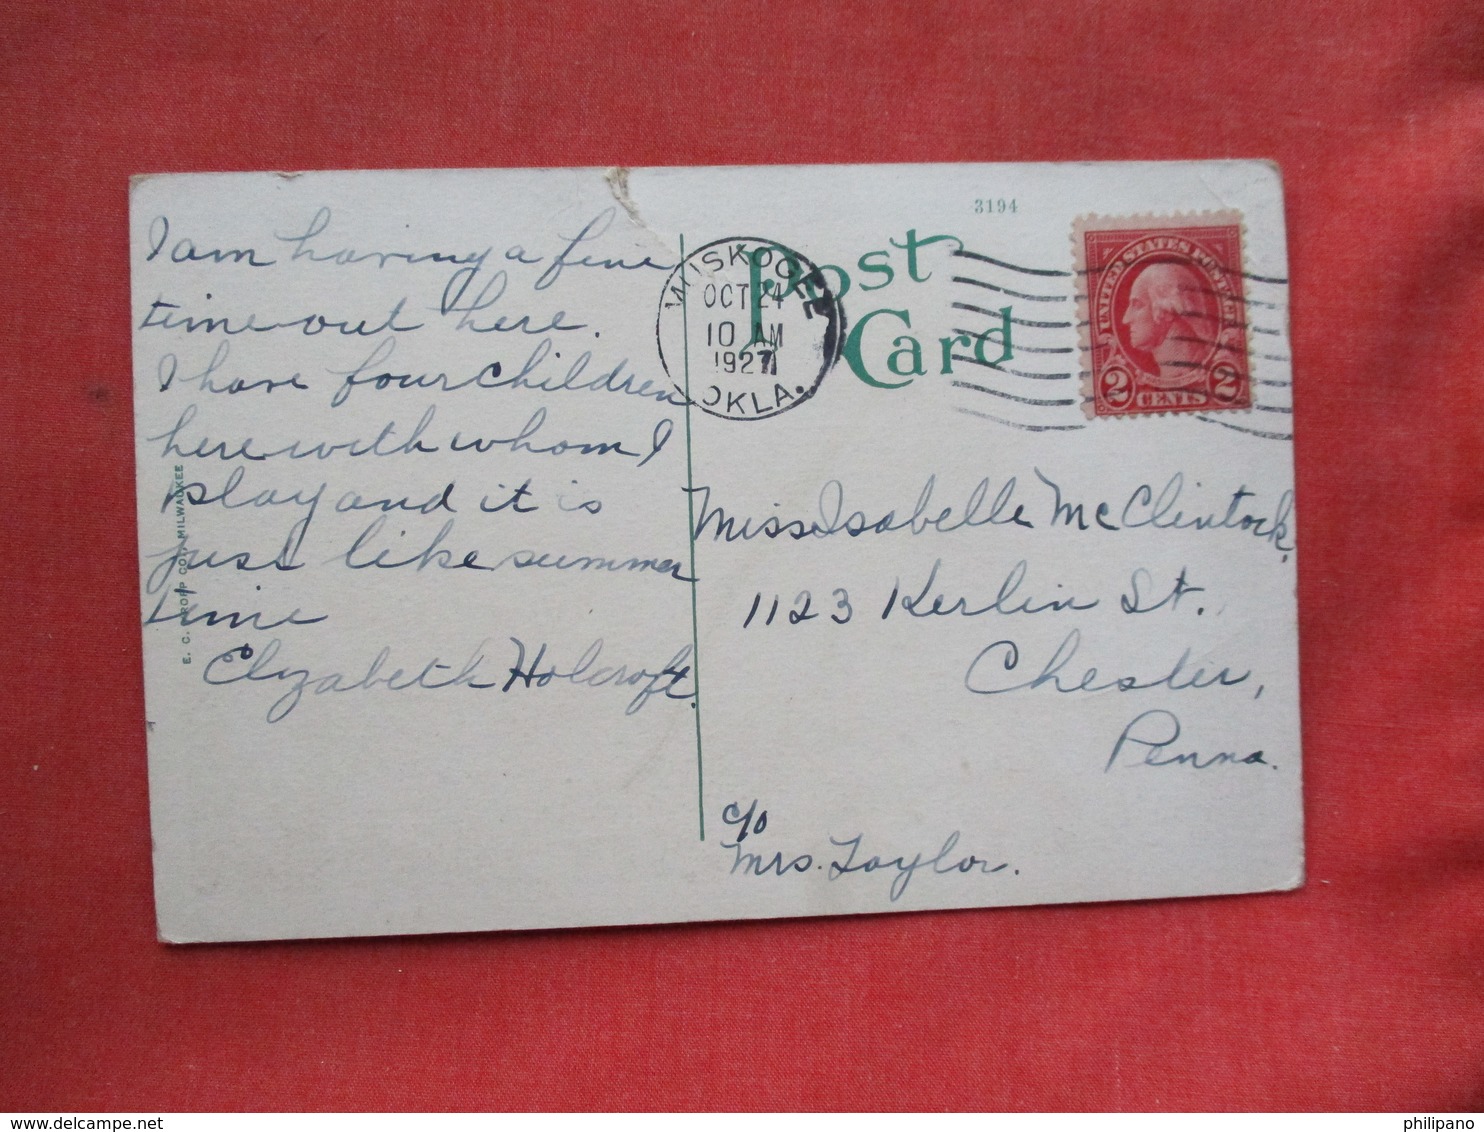 3194
Post
Card
MUSKOGEE
OCT 24
10 AM
1927
OKLA.
UNITED STATES POSTAGE
2 CENTS 2
I am having a fine
time out here.
I have four children
here with whom I
play and it is
just like summer
time
Elizabeth Holcroft.
E. C. KROPP CO., MILWAUKEE
Miss Isabelle McClintock,
1123 Kerlin St.
Chester,
Penna.
c/o
Mrs. Taylor.
philipano